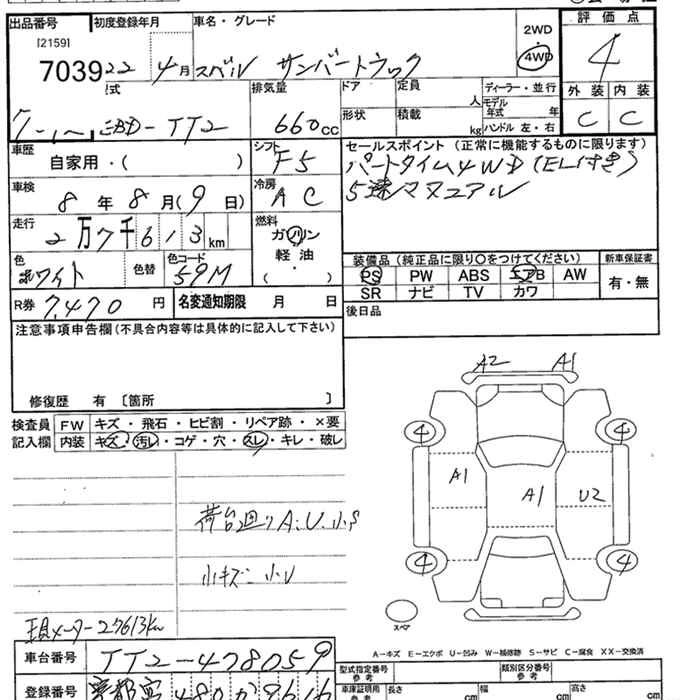 出品番号 初度登録年月 車名・グレード 2WD 評価点
[2159]
7039 22 4月 スバル サンバートラック 4WD 4
排気量 ドア 定員 人 ディーラー・並行 外装 内装
EBD-TT2 660cc 形状 積載 kg モデル年式 年 ハンドル 左・右 C C
車歴 自家用・( ) シフト F5 セールスポイント (正常に機能するものに限ります)
パートタイム4WD(EL付き)
車検 8年8月(9日) 冷房 AC 5速マニュアル
走行 2万7千613km 燃料 ガソリン 軽油・( )
装備品 (純正品に限り〇をつけてください) 新車保証書
色 ホワイト 色替 色コード 59M PS PW ABS エアB AW 有・無
R券 7,470円 名変通知期限 月 日 SR ナビ TV カワ
注意事項申告欄(不具合内容等は具体的に記入して下さい) 後日品
修復歴 有 〔箇所 〕
検査員 FW キズ・飛石・ヒビ割・リペア跡・×要
記入欄 内装 キズ・汚レ・コゲ・穴・スレ・キレ・破レ
A2 A1
4 4
A1 A1 U2
荷台廻りA.U.小S
小キズ・小U
4 4
スペア
現メーター27613km
A-キズ E-エクボ U-凹み W-補修跡 S-サビ C-腐食 XX-交換済
車台番号 TT2-478059
型式指定番号 参考 類別区分番号 参考
登録番号 京都 480
車庫証明用 参考 長さ cm 幅 cm 高さ cm